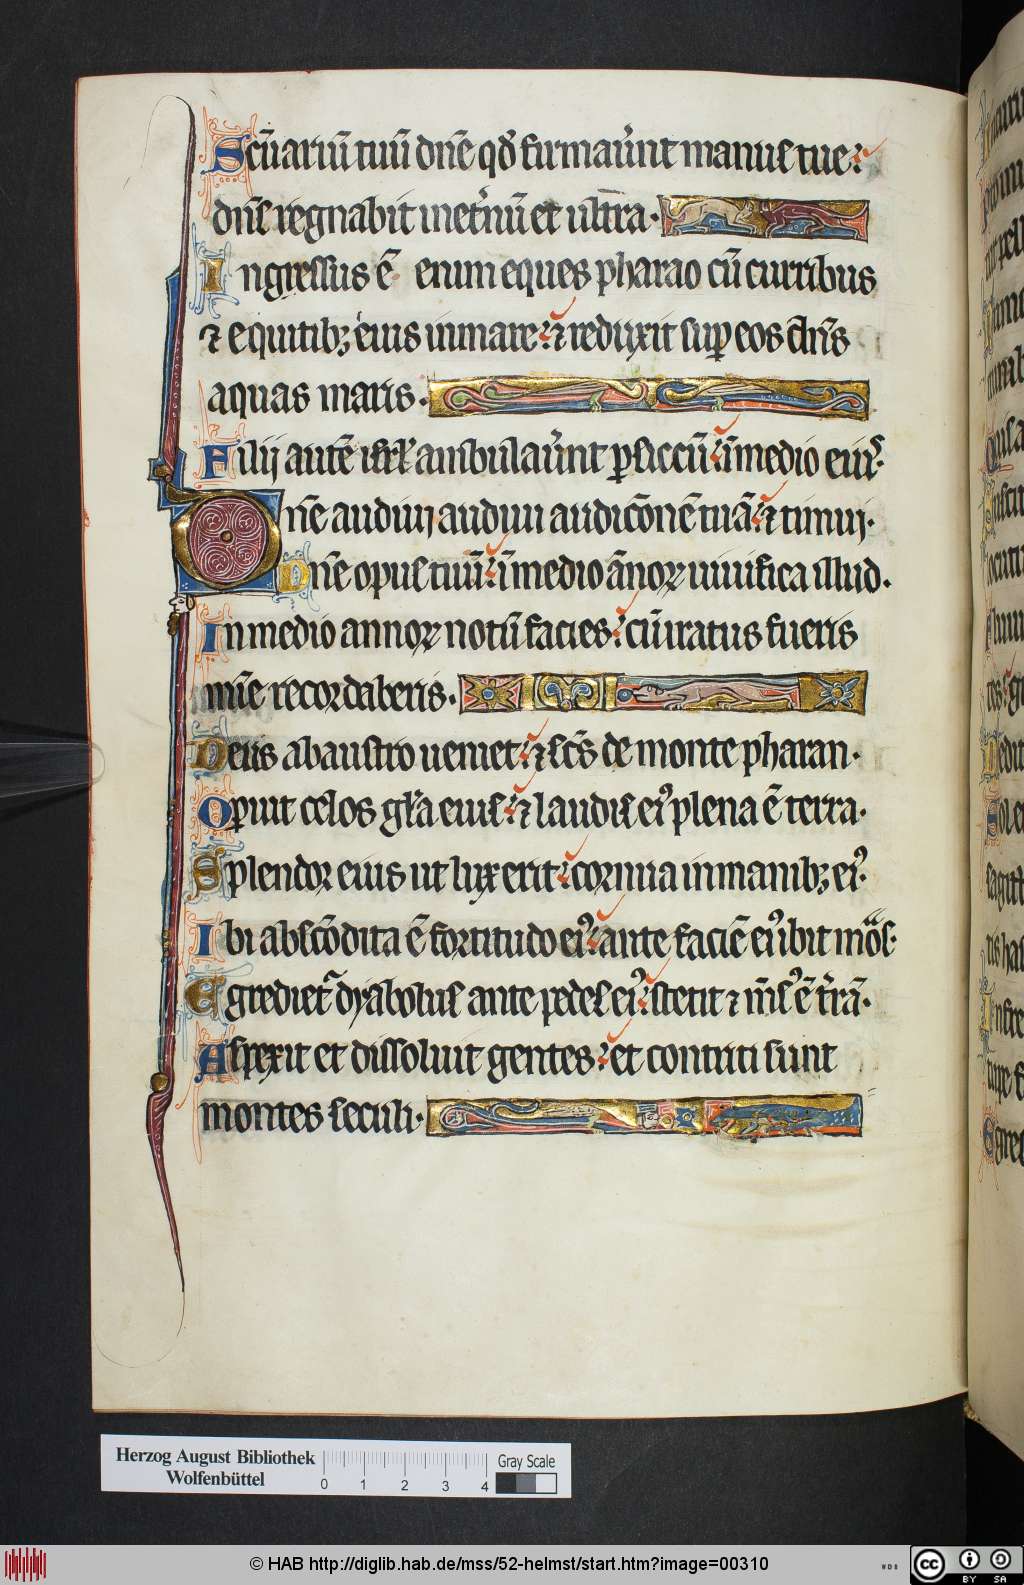 Scūariū tuū dn̄e qd̄ firmaūnt manus tue:
dn̄s regnabit inet̄nū et ult̄ra.
Ingressus ē enim eques pharao cū curribus
⁊ equitibꝫ eius inmare: ⁊ reduxit suꝑ eos dn̄s
aquas maris.
Filij autē isrl̄ ambulaūnt ꝑ siccū: ī medio eiuꝰ.
Dn̄e audiui auditionē tuā: ⁊ timui.
Dn̄e opus tuū: ī medio ānoꝝ uiuifica illud.
In medio annoꝝ notū facies: cū iratus fueris
mīe recordaberis.
Deus abaustro ueniet: ⁊ sc̄s de monte pharan.
Operuit celos gl̄a eius: ⁊ laudis eiꝰ plena ē terra.
Splendor eius ut lux erit: cornua inmanibꝫ eiꝰ.
Ibi abscōdita ē fortitudo eiꝰ: ante faciē eiꝰ ibit mōs.
Egrediet̄ dyabolus ante pedes eiꝰ: stetit ⁊ m̄sꝰ ē t̄rā.
Aspexit et dissoluit gentes: et contriti sunt
montes seculi.
Herzog August Bibliothek
Wolfenbüttel
0 1 2 3 4
Gray Scale
© HAB http://diglib.hab.de/mss/52-helmst/start.htm?image=00310
WDB
cc BY SA